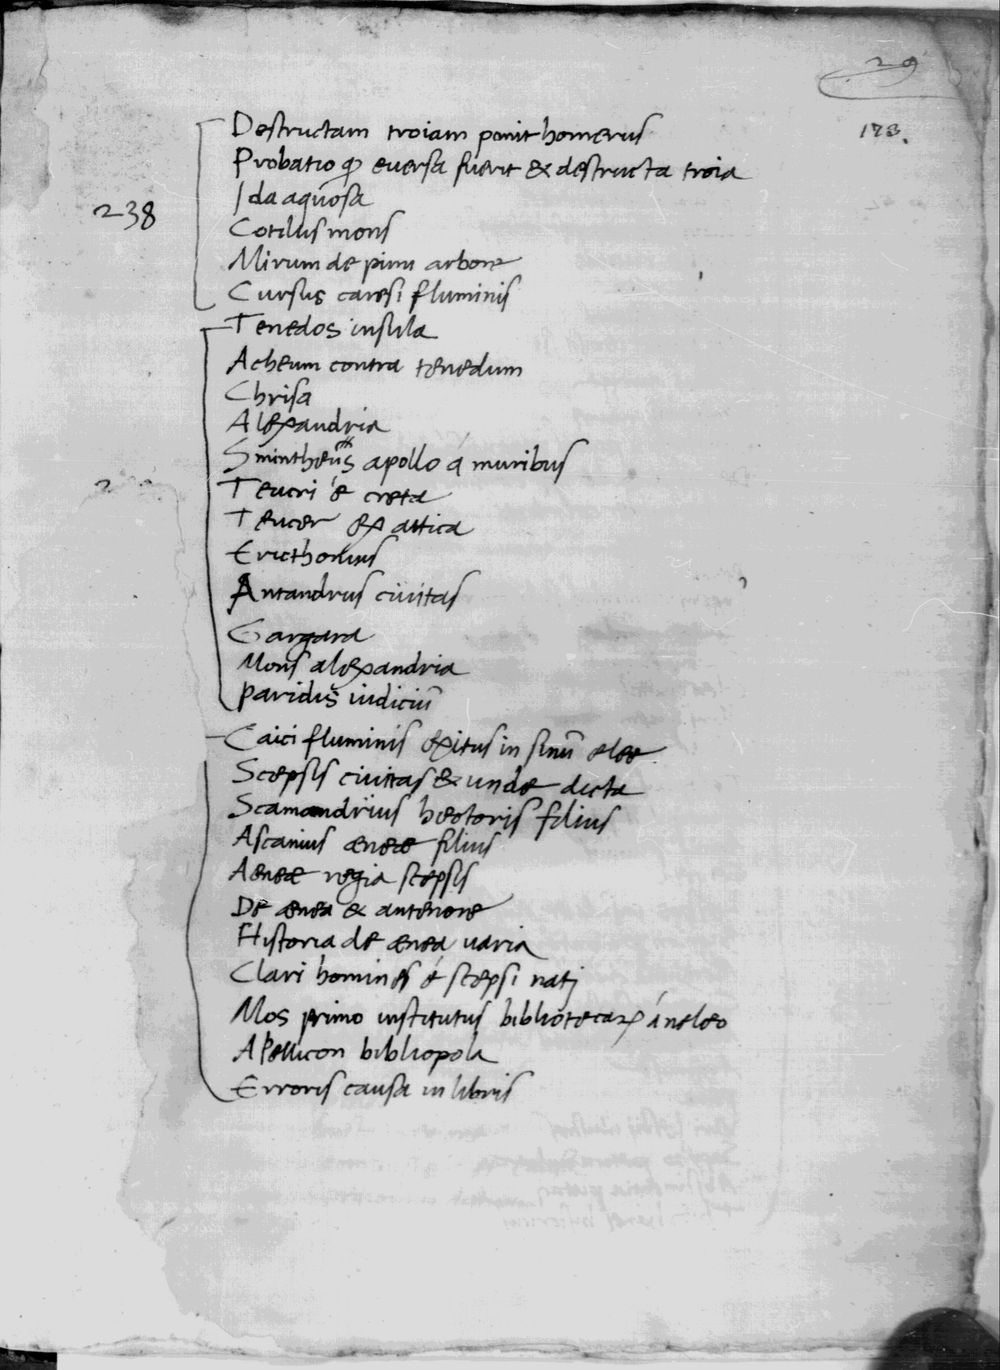 29
173.
Destructam troiam ponit homerus
Probatio ꝙ euersa fuerit & destructa troia
Ida aquosa
238
Cotilus mons
Mirum de pinu arbore
Cursus caresi fluminis
Tenedos insula
Acheum contra tenedum
Chrisa
Alexandria
Smintheus apollo á muribus
2
Teucri é creta
Teucer ex attica
Ericthonius
Antandrus ciuitas
Gargara
Mons alexandria
paridis iudiciũ
Caici fluminis exitus in sinũ elee
Scepsis ciuitas & unde dicta
Scamandrius hectoris filius
Ascanius æneæ filius
Aeneæ regia scepsis
De ænea & antenore
Historia de ænea uaria
Clari homines é scepsi natj
Mos primo institutus bibliotecaꝝ á neleo
Apellicon bibliopola
Erroris causa in libris